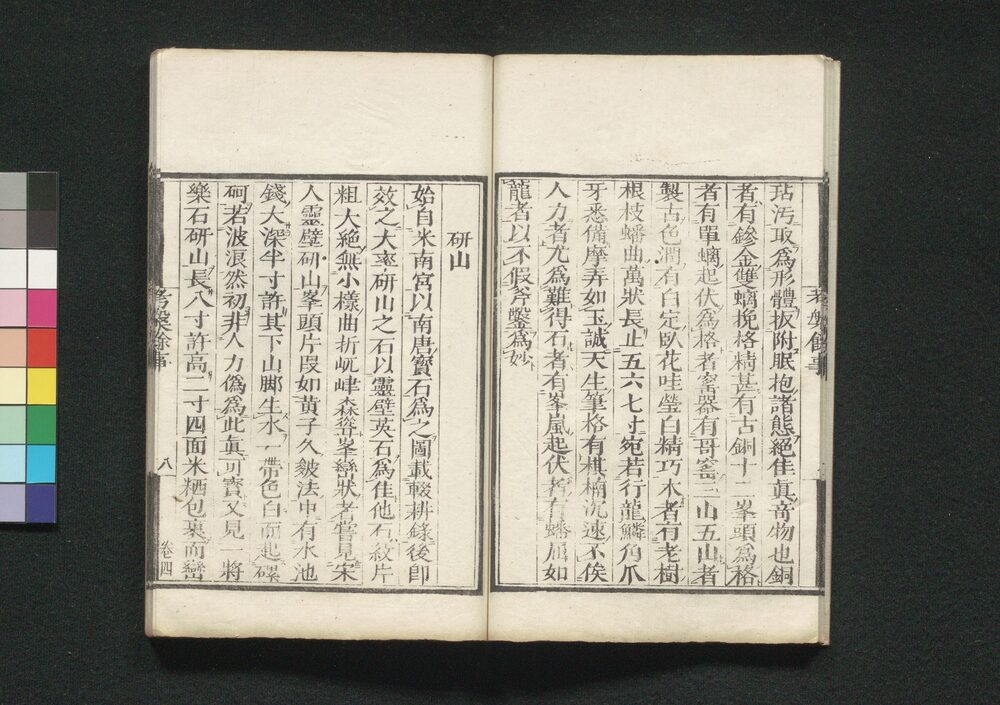 玷汚取爲形體扳附眠抱諸態絕佳眞竒物也銅
者有鏒金雙螭挽格精甚有古銅十二峯頭爲格
者有單螭起伏爲格者窑器有哥窑三山五山者
製古色潤有白定臥花哇瑩白精巧木者有老樹
根枝蟠曲萬狀長止五六七寸宛若行龍鱗角爪
牙悉備摩弄如玉誠天生筆格有棋楠沉速不俟
人力者尤爲難得石者有峯嵐起伏者有蟠屈如
龍者以不假斧鑿爲妙
考槃餘事
研山
始自米南宮以南唐寳石爲之圖載輟耕錄後卽
效之大率研山之石以靈壁英石爲佳他石紋片
粗大絕無小樣曲折屼峍森聳峯巒狀者嘗見宋
人靈壁研山峯頭片段如黃子久皴法中有水池
錢大深半寸許其下山脚生水一帶色白而起磥
砢若波浪然初非人力僞爲此眞可寳又見一將
樂石研山長八寸許高二寸四面米粞包裹而巒
考槃餘事
八
卷四